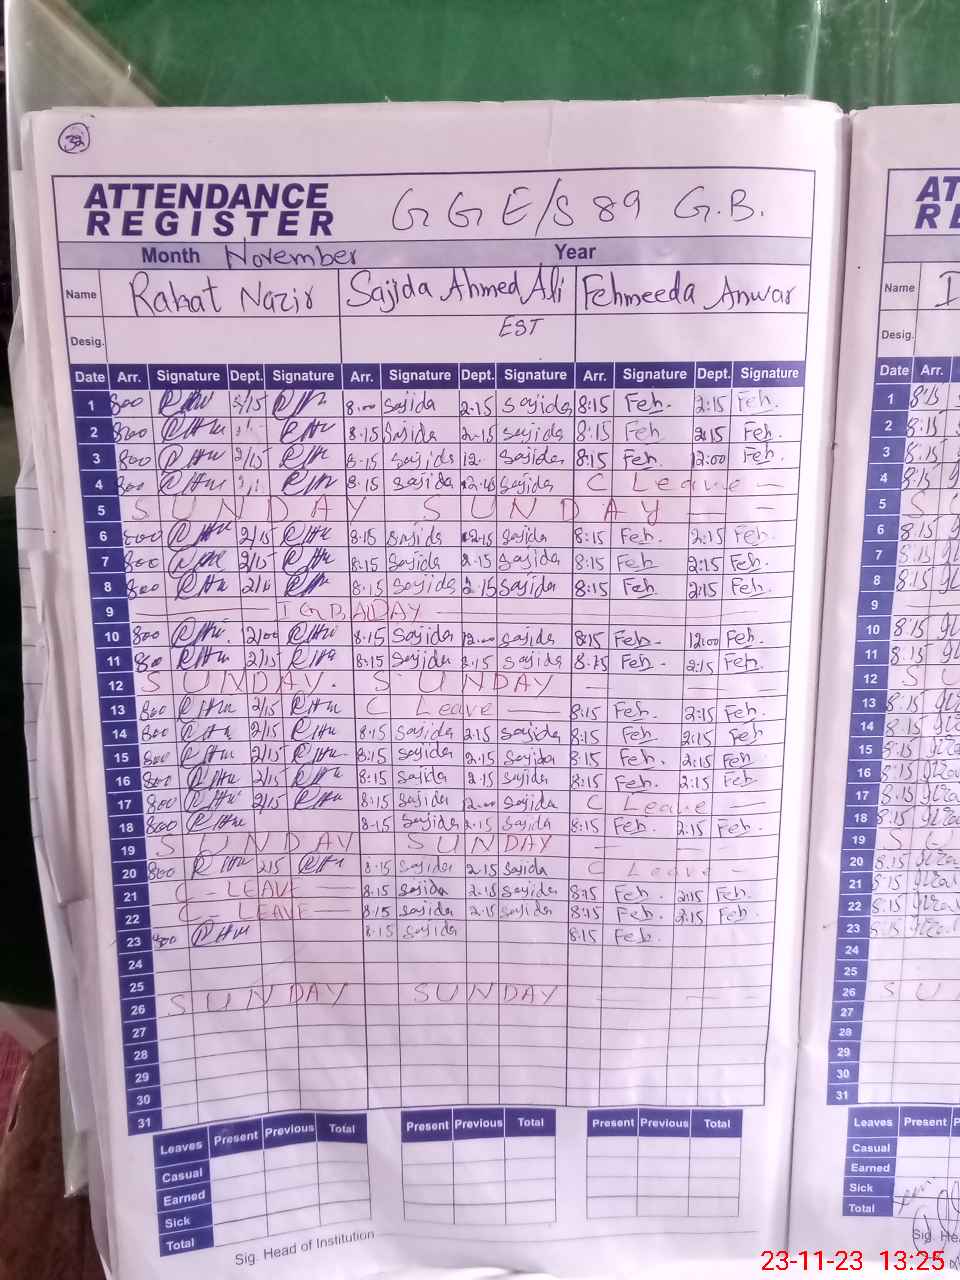 32
ATTENDANCE REGISTER G G E/S 89 G.B.
Month November Year
Name Rahat Nazir Sajida Ahmed Ali Fehmeeda Anwar
Desig. EST
Date Arr. Signature Dept. Signature Arr. Signature Dept. Signature Arr. Signature Dept. Signature
1 800 2/15 8:00 Sajida 2.15 Sajida 8:15 Feh. 2:15 Feh.
2 800 8.15 Sajida 2.15 Sajida 8:15 Feh 2:15 Feh.
3 800 2/15 8.15 Sajida 12. Sajida 8:15 Feh. 12:00 Feh.
4 800 8.15 Sajida Sajida C Leave
5 SUNDAY SUNDAY
6 800 2/15 8.15 Sajida 2.15 Sajida 8:15 Feh. 2:15 Feh.
7 800 2/15 8:15 Sajida 2.15 Sajida 8:15 Feh 2:15 Feh.
8 800 8.15 Sajida 2.15 Sajida 8:15 Feh 2:15 Feh.
9 DAY
10 800 8.15 Sajida Sajida 8:15 Feh- 12:00 Feh.
11 800 2/15 8.15 Sajida 2.15 Sajida 8:15 Feh- 2:15 Feh.
12 SUNDAY. SUNDAY
13 800 2/15 C Leave 8:15 Feh. 2:15 Feh.
14 800 2/15 8.15 Sajida 2.15 Sajida 8:15 Feh. 2:15 Feh
15 800 2/15 8:15 Sajida 2.15 Sajida 8:15 Feh. 2:15 Feh
16 800 2/15 8.15 Sajida 2.15 Sajida 8:15 Feh. 2:15 Feh
17 800 2/15 8:15 Sajida Sajida C Leave
18 800 8.15 Sajida 2.15 Sajida 8:15 Feh. 2:15 Feh.
19 SUNDAY SUNDAY
20 800 2/15 8.15 Sajida 2.15 Sajida C Leave
21 C - LEAVE 8.15 Sajida 2.15 Sajida 8:15 Feh. 2:15 Feh.
22 C - LEAVE 8.15 Sajida 2.15 Sajida 8:15 Feh. 2:15 Feh.
23 800 8.15 Sajida 8:15 Feh.
24
25
26 SUNDAY SUNDAY
27
28
29
30
31
Leaves Present Previous Total Present Previous Total Present Previous Total
Casual
Earned
Sick
Total
Sig. Head of Institution
Name
Desig.
Date Arr.
1 8:15
2 8:15
3 8:15
4 8:15
5 S
6 8.15
7 8.15
8 8.15
9
10 8.15
11 8.15
12 S
13 8.15
14 8.15
15 8:15
16 8.15
17 8.15
18 8.15
19 S
20 8.15
21 8.15
22 8:15
23 8.15
24
25
26 S U
27
28
29
30
31
Leaves Present
Casual
Earned
Sick
Total
23-11-23 13:25